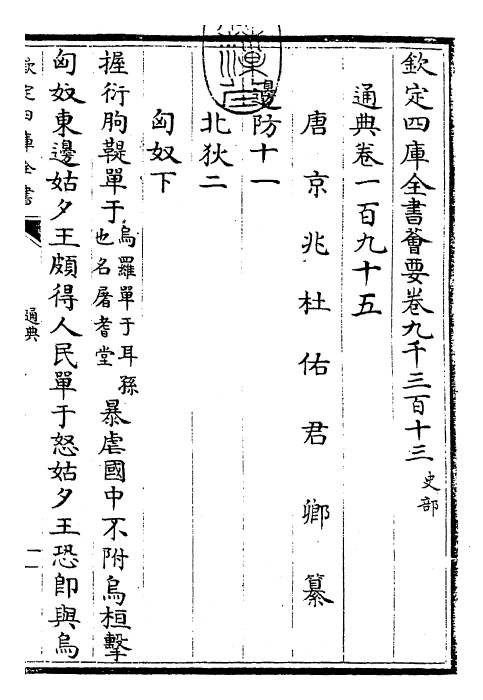 欽定四庫全書薈要卷九千三百十三 史部
通典卷一百九十五
唐京兆杜佑君卿纂
邊防十一
北狄二
匈奴下
握衍朐鞮單于烏羅單于耳孫也名屠耆堂暴虐國中不附烏桓擊
匈奴東邊姑夕王頗得人民單于怒姑夕王恐即與烏
欽定四庫全書
通典
一